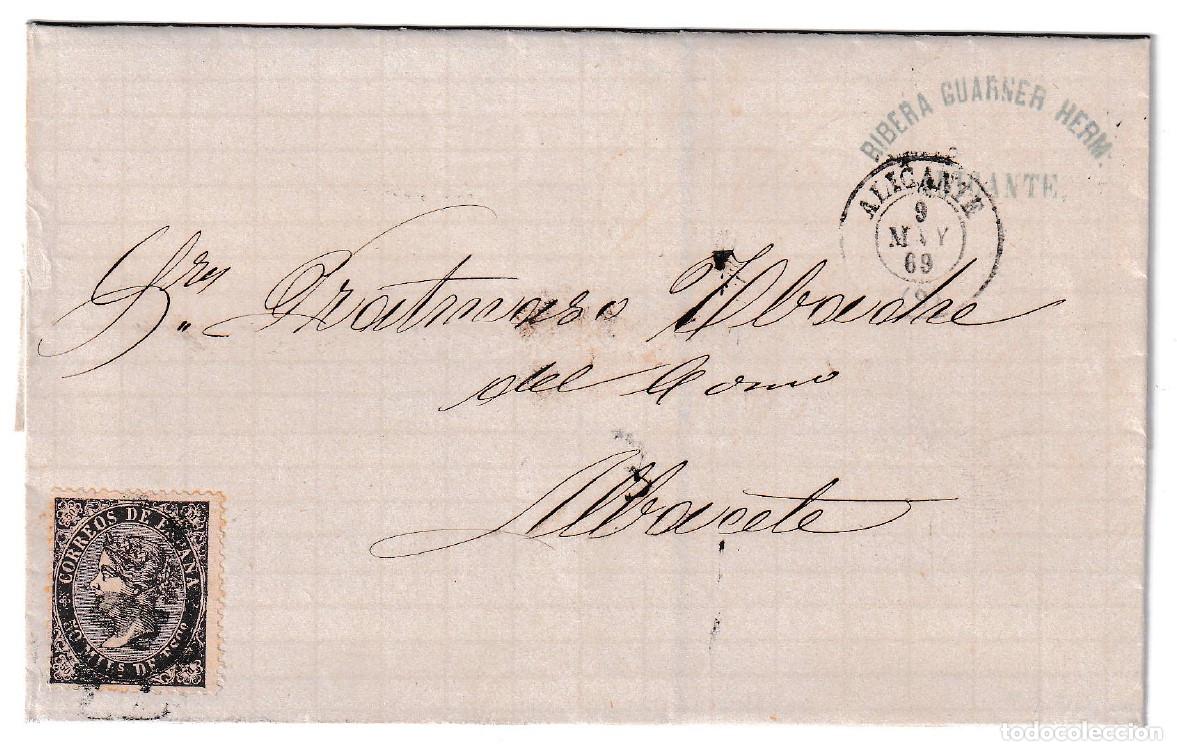 RIBERA GUARNER HERM.
ALICANTE.
ALICANTE
9
MAY
69
Sres
del Como
Albacete
CORREOS DE ESPAÑA
50 MILS DE ESDO
todocoleccion